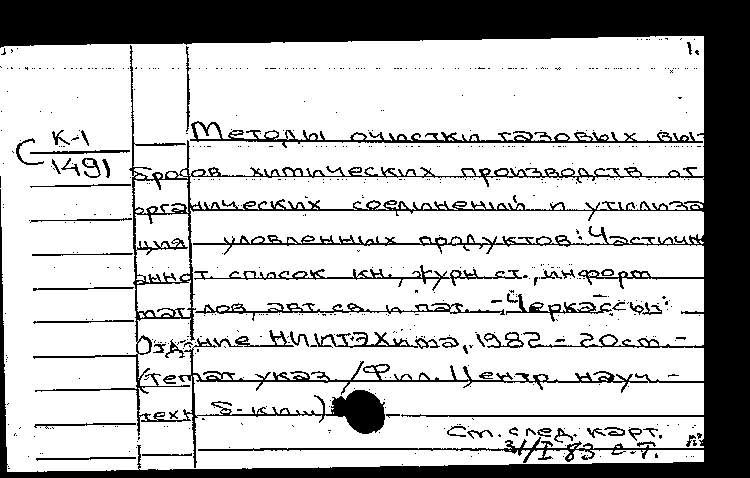 1.
Методы очистки газовых вы-
С К-1/1491
бросов химических производств от
органических соединений и утилиза
ция уловленных продуктов: Частичн
аннот. список кн., журн. ст., информ
мат-лов, авт. св. и пат. - Черкассы:
Отд-ние НИИТЭХима, 1982 - 20см. -
(Темат. указ / Фил. Центр. науч. -
техн. б-ки...)
См. след. карт.
31/I 83 С.Т.